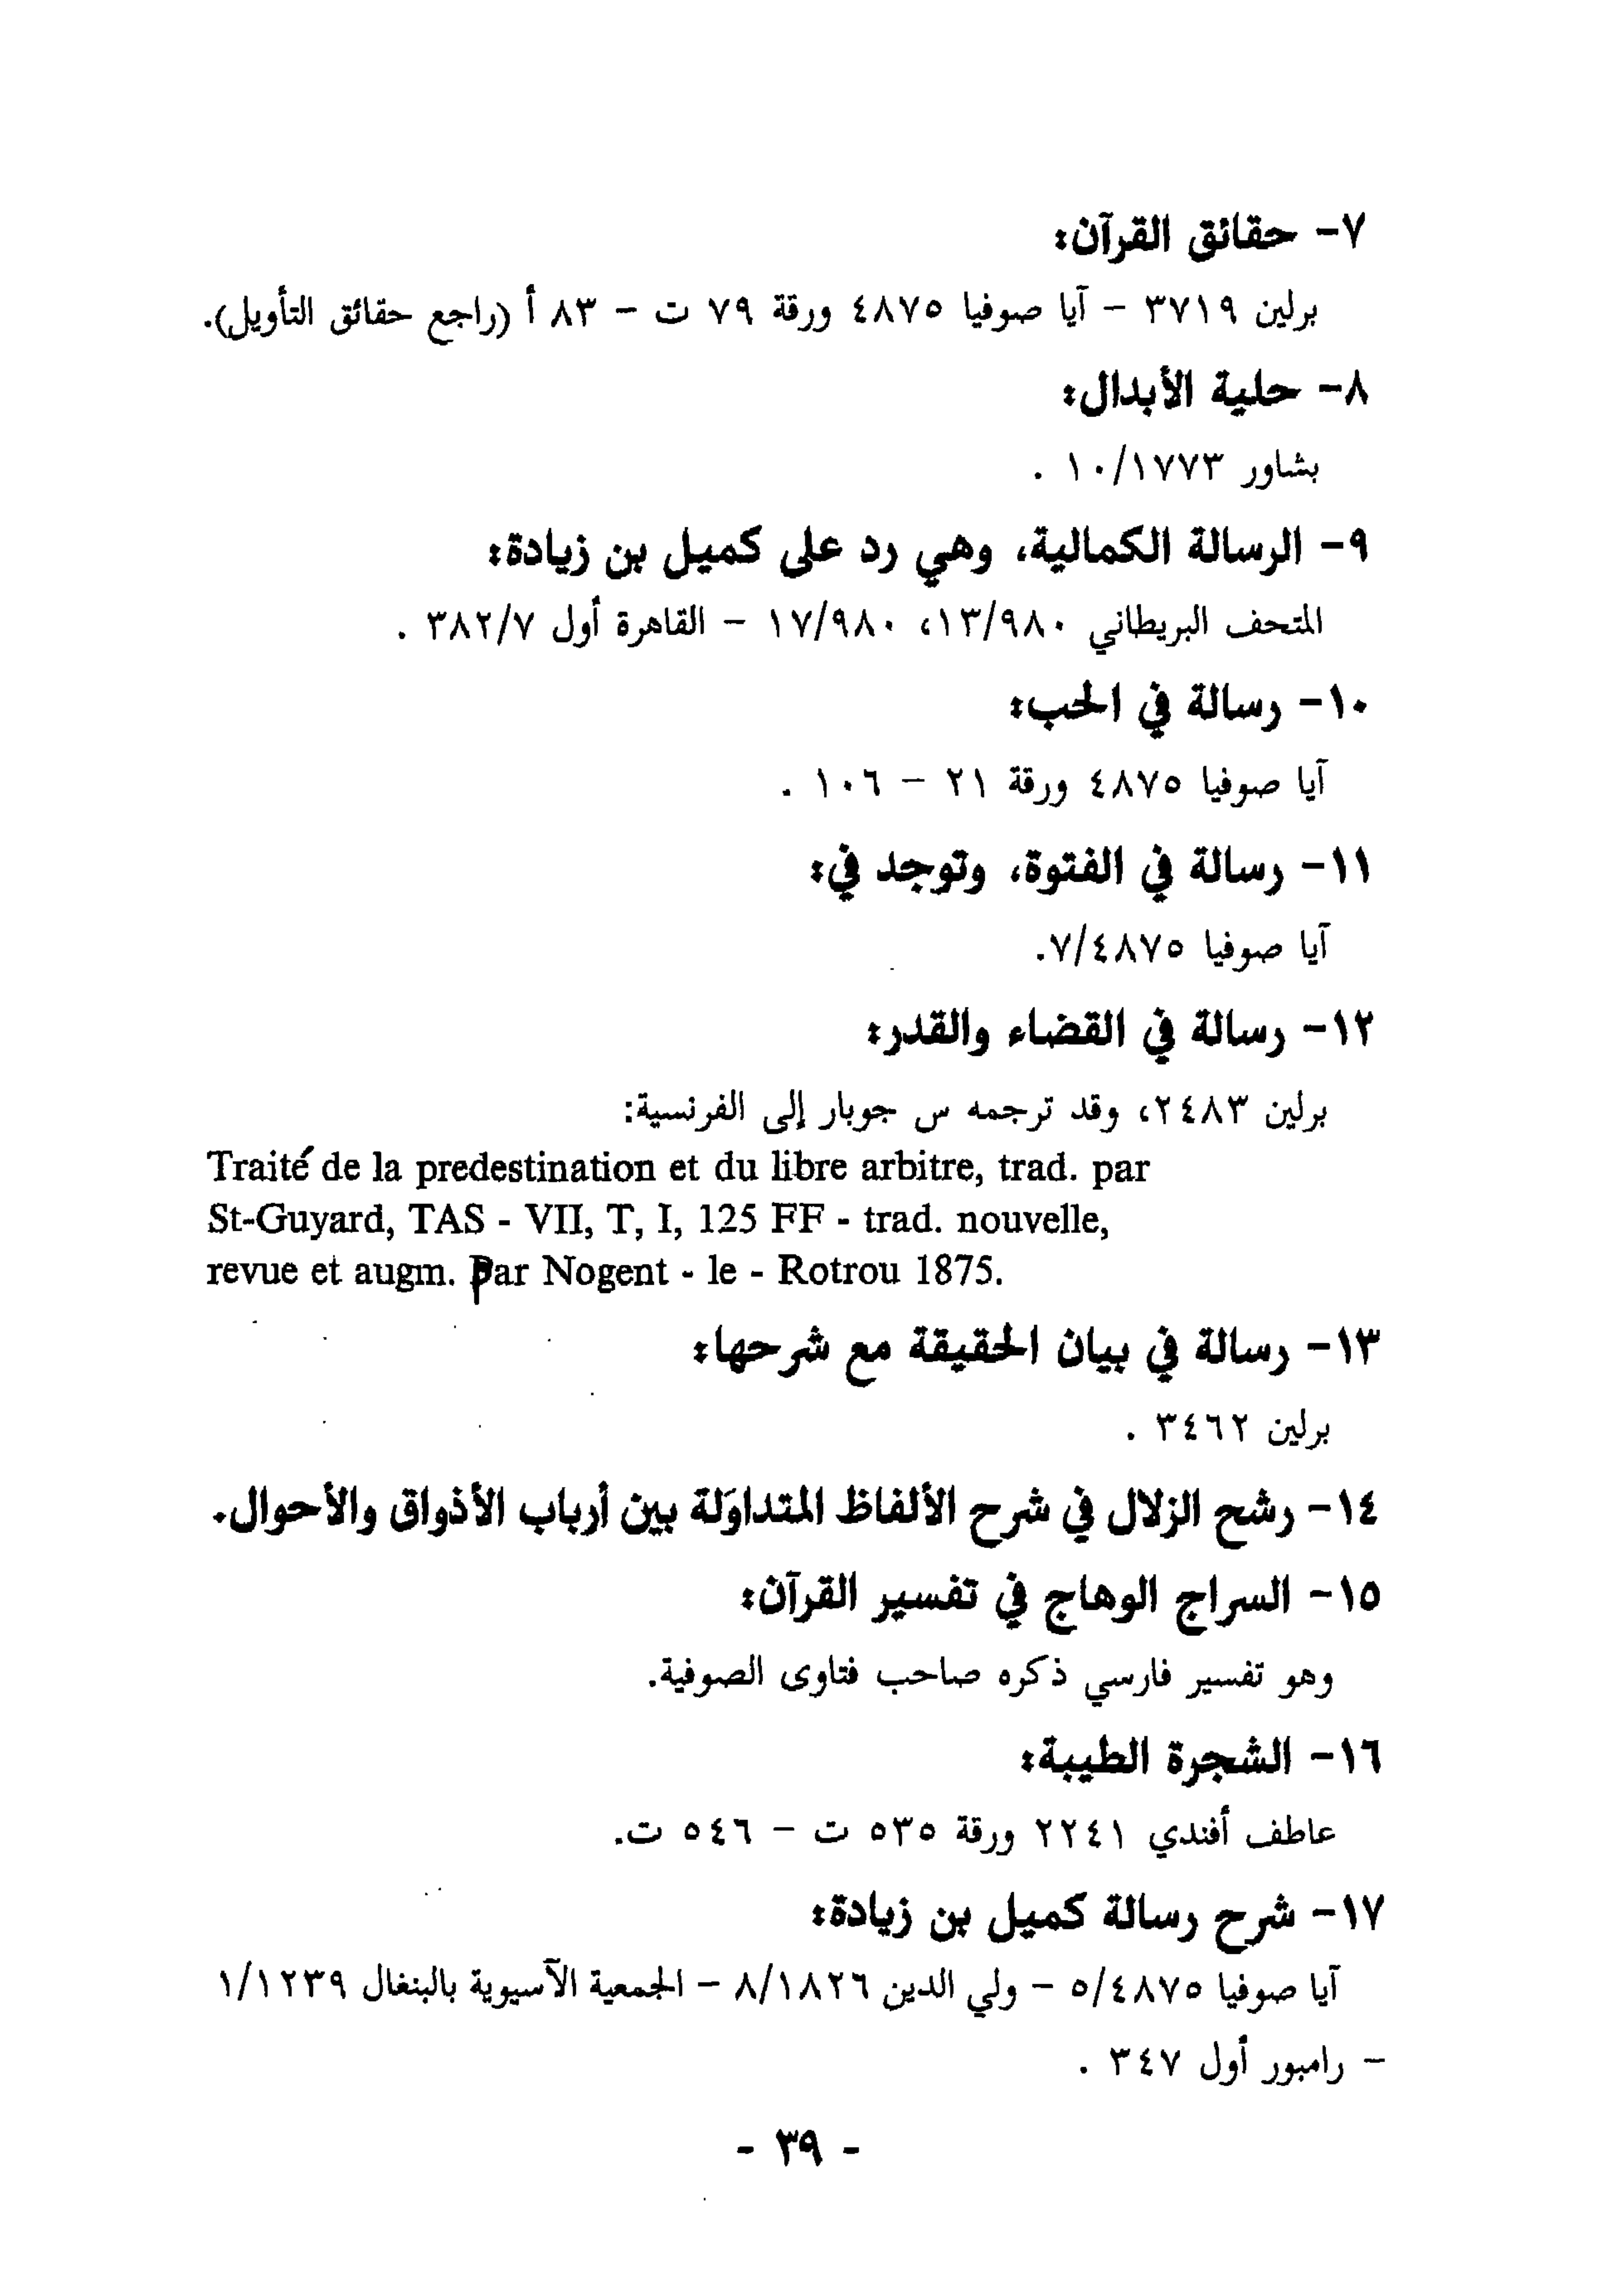 ٧- حقائق القرآن:
برلين ٣٧١٩ - آيا صوفيا ٤٨٧٥ ورقة ٧٩ ت - ٨٣ أ (راجع حقائق التأويل).
٨- حلية الأبدال:
بشاور ١٠/١٧٧٣ .
٩- الرسالة الكمالية، وهي رد على كميل بن زيادة:
المتحف البريطاني ١٣/٩٨٠، ١٧/٩٨٠ - القاهرة أول ٣٨٢/٧ .
١٠- رسالة في الحب:
آيا صوفيا ٤٨٧٥ ورقة ٢١ - ١٠٦ .
١١- رسالة في الفتوة، وتوجد في:
آيا صوفيا ٧/٤٨٧٥.
١٢- رسالة في القضاء والقدر:
برلين ٢٤٨٣، وقد ترجمه س جوبار إلى الفرنسية:
Traité de la predestination et du libre arbitre, trad. par
St-Guyard, TAS - VII, T, I, 125 FF - trad. nouvelle,
revue et augm. par Nogent - le - Rotrou 1875.
١٣- رسالة في بيان الحقيقة مع شرحها:
برلين ٣٤٦٢ .
١٤- رشح الزلال في شرح الألفاظ المتداوَلة بين أرباب الأذواق والأحوال.
١٥- السراج الوهاج في تفسير القرآن:
وهو تفسير فارسي ذكره صاحب فتاوى الصوفية.
١٦- الشجرة الطيبة:
عاطف أفندي ٢٢٤١ ورقة ٥٣٥ ت - ٥٤٦ ت.
١٧- شرح رسالة كميل بن زيادة:
آيا صوفيا ٥/٤٨٧٥ - ولي الدين ٨/١٨٢٦ - الجمعية الآسيوية بالبنغال ١/١٢٣٩
- رامبور أول ٣٤٧ .
- ٣٩ -